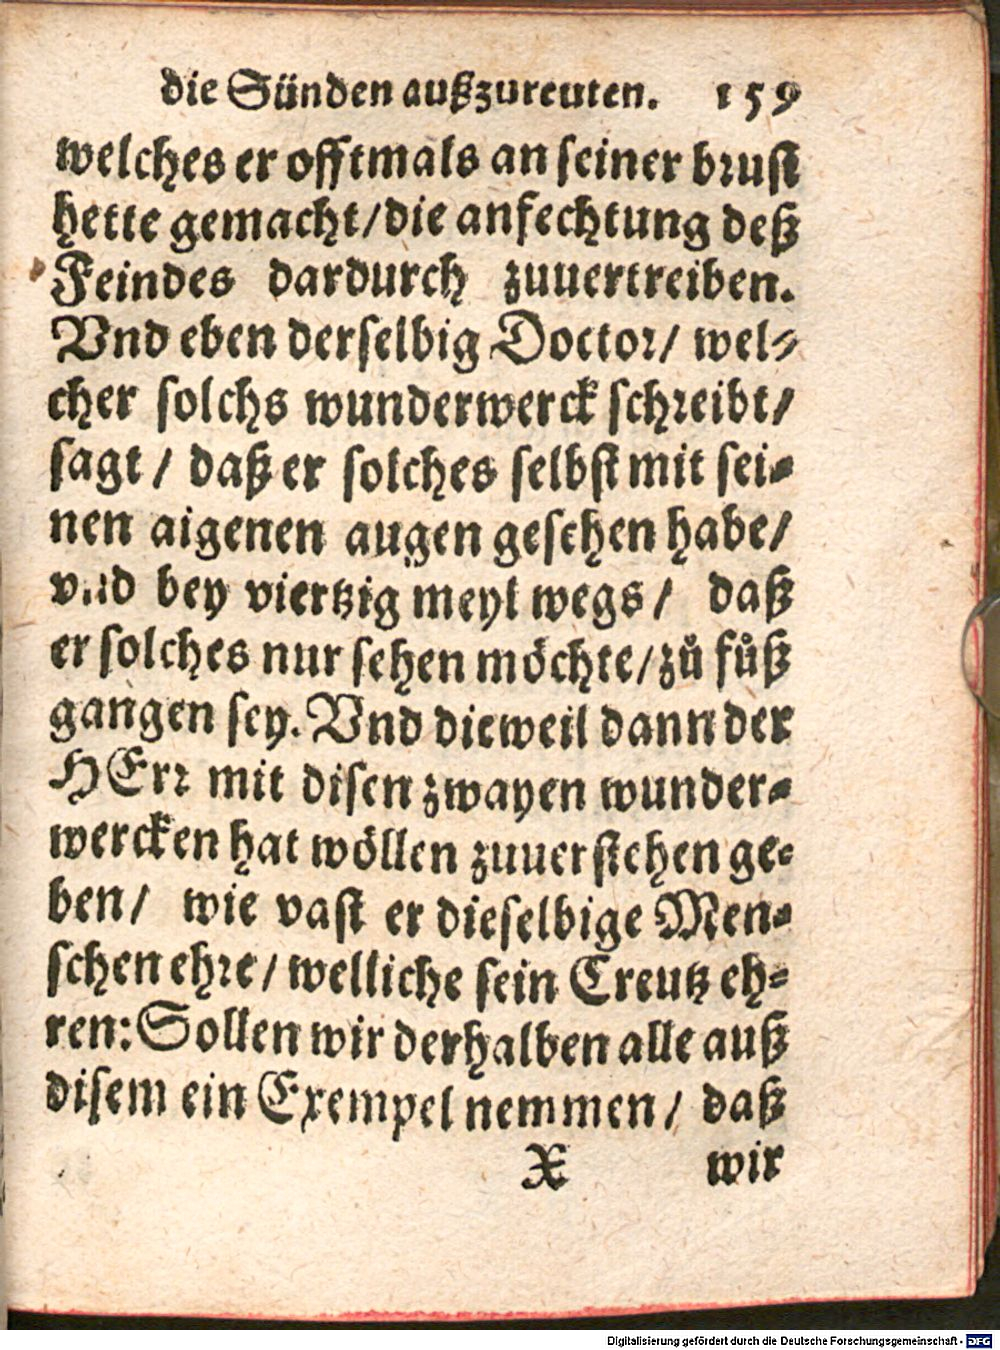 die Sünden außzureuten. 159
welches er offtmals an seiner brust
hette gemacht/die anfechtung deß
Feindes dardurch zuuertreiben.
Vnd eben derselbig Doctor/ wel-
cher solchs wunderwerck schreibt/
sagt/ daß er solches selbst mit sei-
nen aigenen augen gesehen habe/
vnd bey viertzig meyl wegs/ daß
er solches nur sehen möchte/zů fůß
gangen sey. Vnd dieweil dann der
HErr mit disen zwayen wunder-
wercken hat wöllen zuuerstehen ge-
ben/ wie vast er dieselbige Men-
schen ehre/ welliche sein Creutz eh-
ren: Sollen wir derhalben alle auß
disem ein Exempel nemmen/ daß
X wir
Digitalisierung gefördert durch die Deutsche Forschungsgemeinschaft - DFG